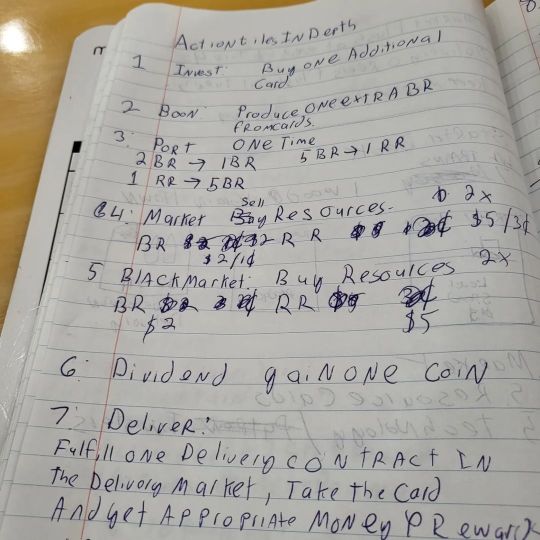 Action tiles In Depth
1 Invest: Buy one Additional
Card
2 Boon: Produce ONE extra BR
from cards
3: Port ONe Time
2 BR → 1BR 5 BR → 1 RR
1 RR → 5BR
4: Market Sell Resources. 2x
BR $2/1¢ RR $5/3¢
5 Black Market: Buy Resources 2x
BR $2 RR $5
6: Dividend gain one coin
7: Deliver:
Fulfill one Delivery contract IN
the Delivory Market, Take the Card
And get Appropriate Money